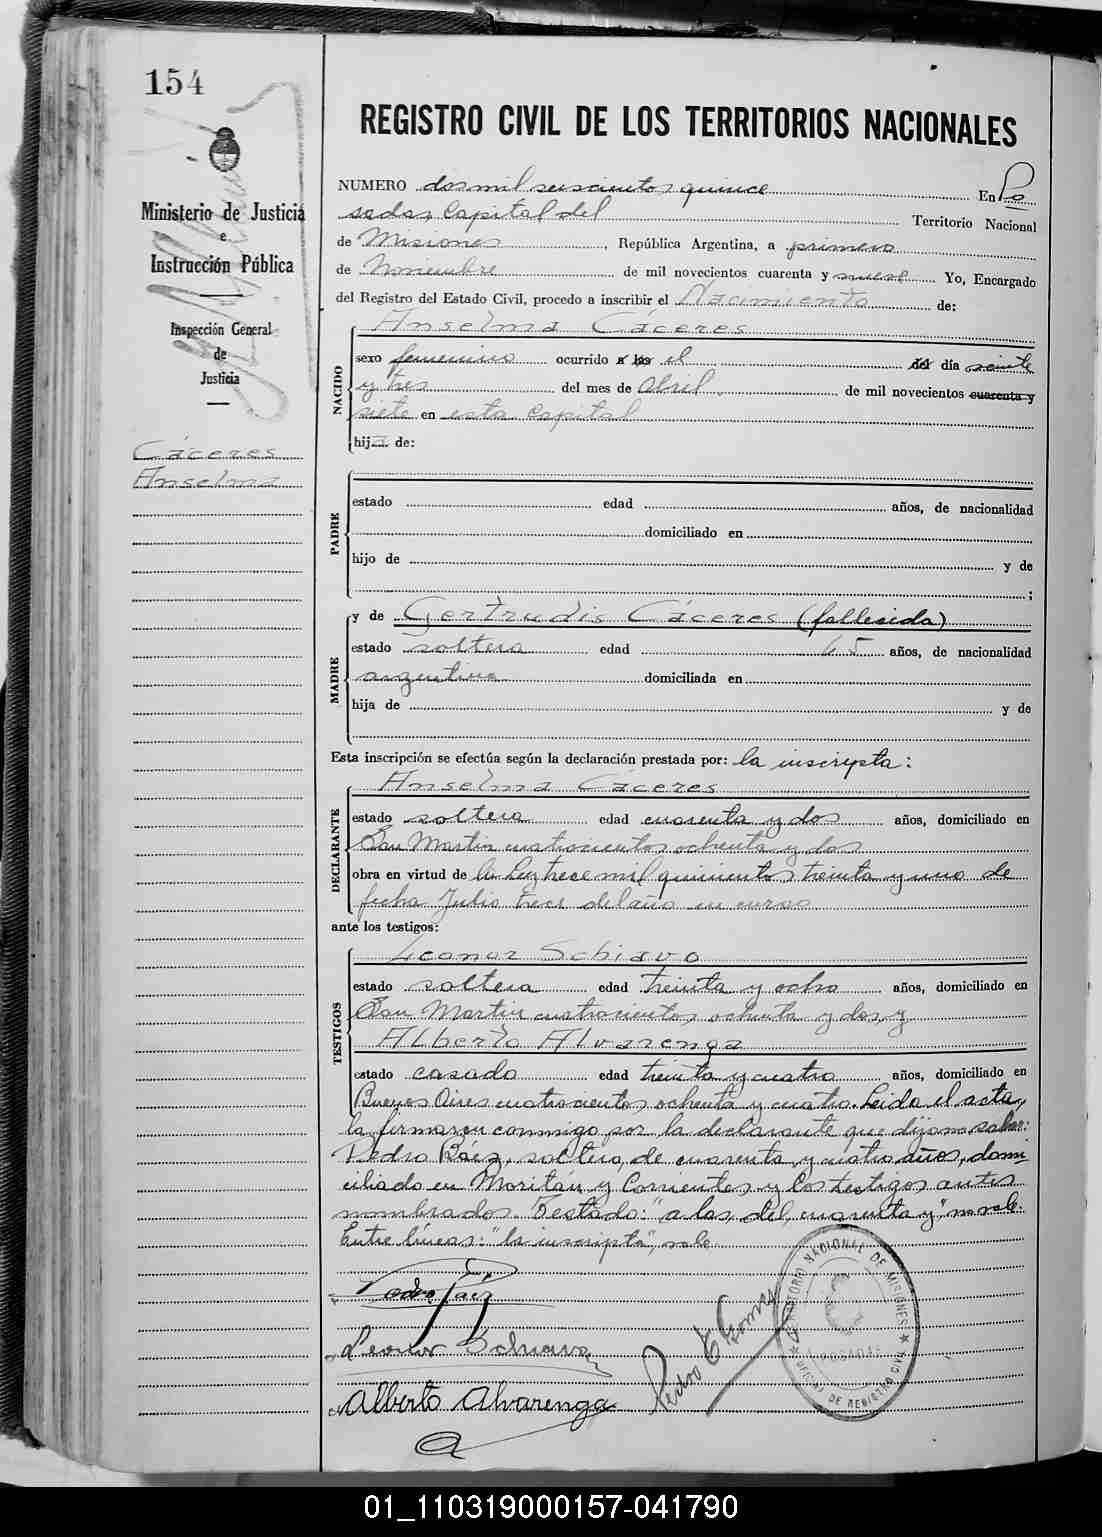 154
REGISTRO CIVIL DE LOS TERRITORIOS NACIONALES
Ministerio de Justicia
e
Instrucción Pública
Inspección General
de
Justicia
Cáceres
Anselma
NUMERO dos mil seiscientos quince En Po
sadas, Capital del Territorio Nacional
de Misiones, República Argentina, a primero
de Noviembre de mil novecientos cuarenta y nueve Yo, Encargado
del Registro del Estado Civil, procedo a inscribir el Nacimiento de:
NACIDO
Anselma Cáceres
sexo femenino ocurrido a las el del día veinte
y tres del mes de Abril de mil novecientos cuarenta y
siete en esta Capital
hija de:
PADRE
estado edad años, de nacionalidad
domiciliado en
hijo de y de
;
MADRE
y de Gertrudis Cáceres (fallesida)
estado soltera edad 45 años, de nacionalidad
argentina domiciliada en
hija de y de
Esta inscripción se efectúa según la declaración prestada por: la inscripta:
DECLARANTE
Anselma Cáceres
estado soltera edad cuarenta y dos años, domiciliado en
San Martin cuatrocientos ochenta y dos
obra en virtud de la Ley trece mil quinientos treinta y uno de
fecha Julio trece del año en curso
ante los testigos:
TESTIGOS
Leonor Schiavo
estado soltera edad treinta y ocho años, domiciliado en
San Martin cuatrocientos ochenta y dos, y
Alberto Alvarenga
estado casado edad treinta y cuatro años, domiciliado en
Buenos Aires cuatrocientos ochenta y cuatro. Leida el acta,
la firmaron conmigo por la declarante que dijo no saber:
Pedro Báez, soltero, de cuarenta y cuatro años, domi
ciliado en Moritán y Corrientes y los testigos antes
nombrados. Testado: "a las, del, cuarenta y", no vale.
Entre líneas: "la inscripta", vale
Pedro Báez
Leonor Schiavo
Alberto Alvarenga
Pedro E Gomez
TERRITORIO NACIONAL DE MISIONES
POSADAS
OFICINA DE REGISTRO CIVIL
01_110319000157-041790